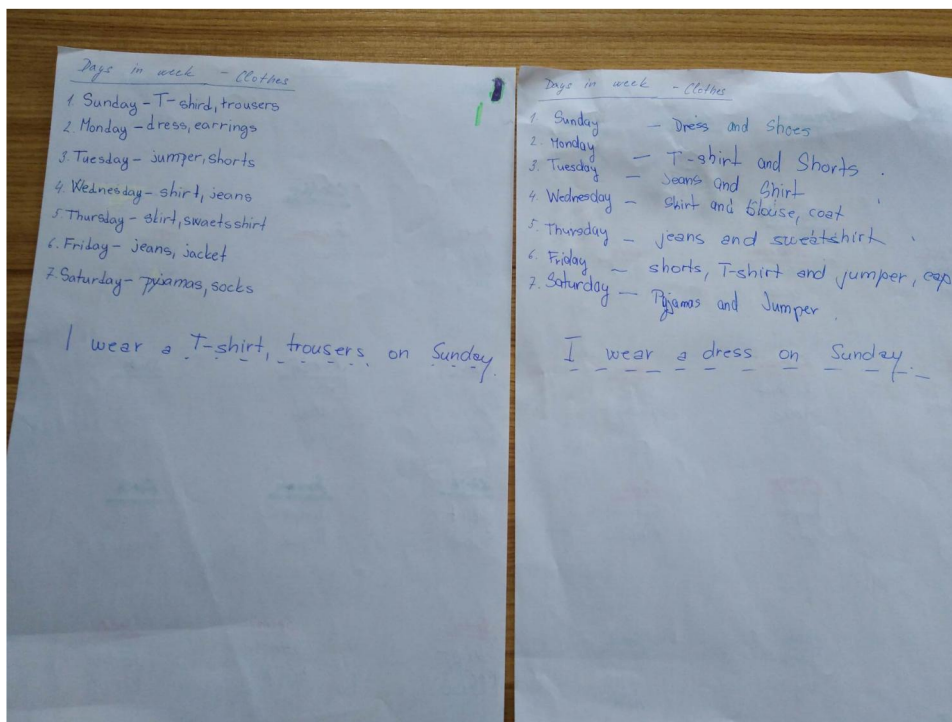 Days in week - Clothes
1. Sunday - T-shird, trousers
2. Monday - dress, earrings
3. Tuesday - jumper, shorts
4. Wednesday - shirt, jeans
5. Thursday - skirt, swaetsshirt
6. Friday - jeans, jacket
7. Saturday - pyjamas, socks
I wear a T-shirt, trousers on Sunday.
Days in week - Clothes
1. Sunday - Dress and Shoes
2. Monday - T-shirt and Shorts.
3. Tuesday - Jeans and Shirt
4. Wednesday - Skirt and blouse, coat
5. Thursday - jeans and sweatshirt.
6. Friday - shorts, T-shirt and jumper, cap
7. Saturday - Pyjamas and Jumper.
I wear a dress on Sunday.